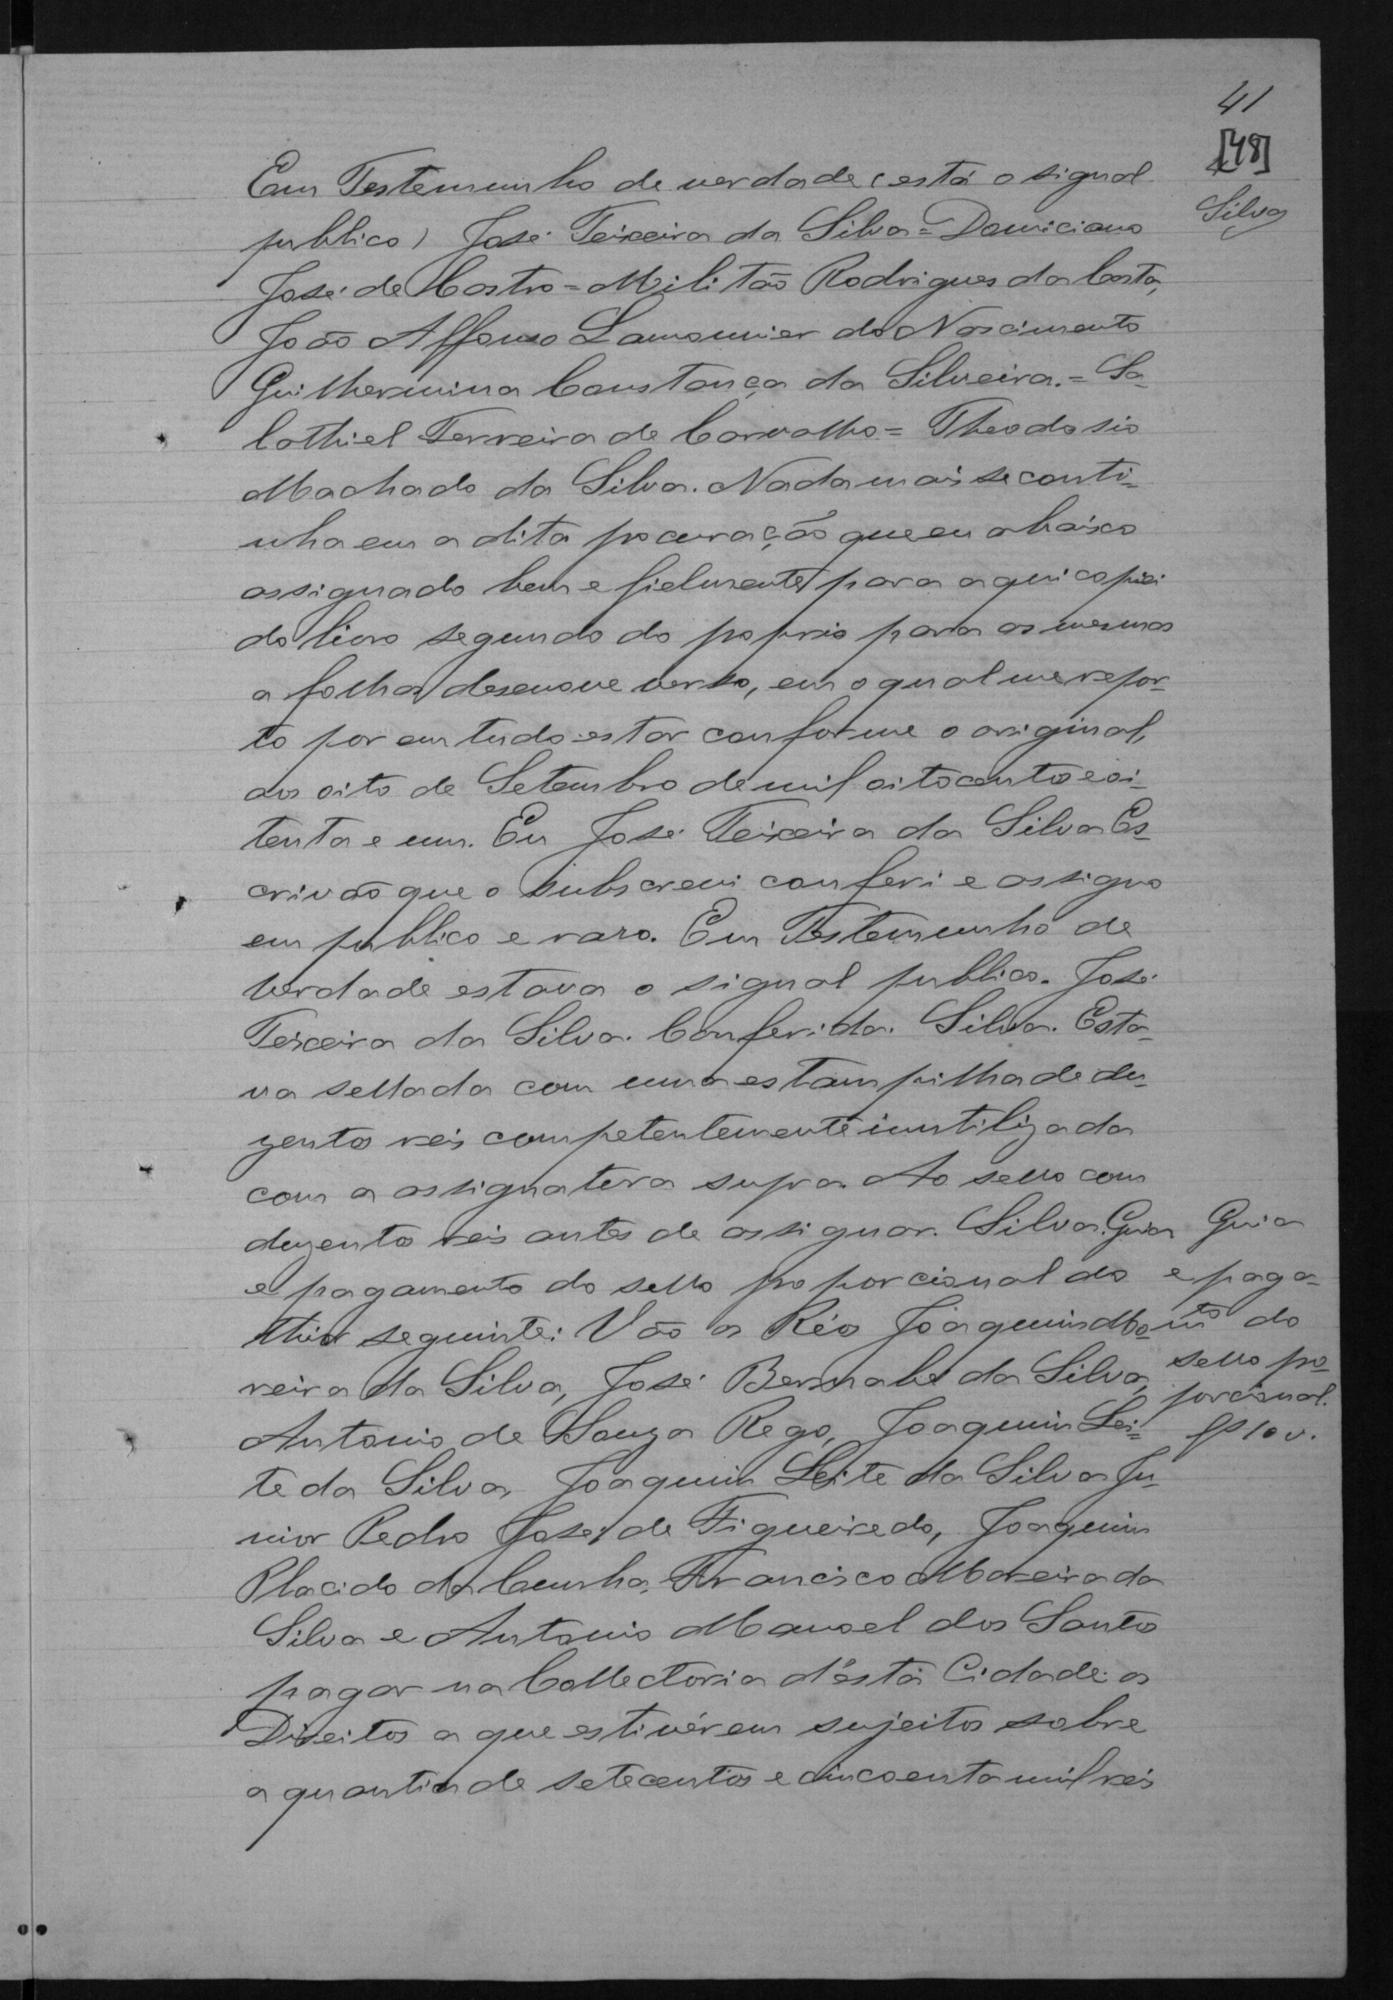 41
[48]
Silva
Em Testemunho de verdade (está o signal
publico) José Teixeira da Silva = Domiciano
José de Castro = Militão Rodrigues da Costa,
João Affonso Lamounier do Nascimento
Guilhermina Constança da Silveira. = Sa-
lathiel Ferreira de Carvalho = Theodosio
Machado da Silva. Nada mais se conti-
nha em a dita procuração que eu abaixo
assignado bem e fielmente para aqui copiei
do livro segundo do proprio para os mesmos
a folha desenove verso, em o qual me repor-
to por em tudo estar conforme o original,
aos oito de Setembro de mil oitocentos e oi-
tenta e um. Eu José Teixeira da Silva Es-
crivão que o subscrevi conferi e assigno
em publico e raso. Em Testemunho de
verdade estava o signal publico. José
Teixeira da Silva. Conferida. Silva. Esta-
va sellada com uma estampilha de du-
zentos reis competentemente inutilizada
com a assignatura supra. Ao sello com
duzentos reis antes de assignar. Silva. Guia
e pagamento do sello proporcional do
thior seguinte: Vão os Réos Joaquim Mo-
reira da Silva, José Bernabe da Silva,
Antonio de Souza Rego, Joaquim Lei-
te da Silva, Joaquim Leite da Silva Ju-
nior Pedro José de Figueiredo, Joaquim
Placido da Cunha, Francisco Moreira da
Silva e Antonio Manoel dos Santos
pagar na Collectoria d'ésta Cidade os
Direitos a que estivérem sujeitos sobre
a quantia de setecentos e cincoenta mil reis
Guia
e paga-
mto do
sello pro-
porcional.